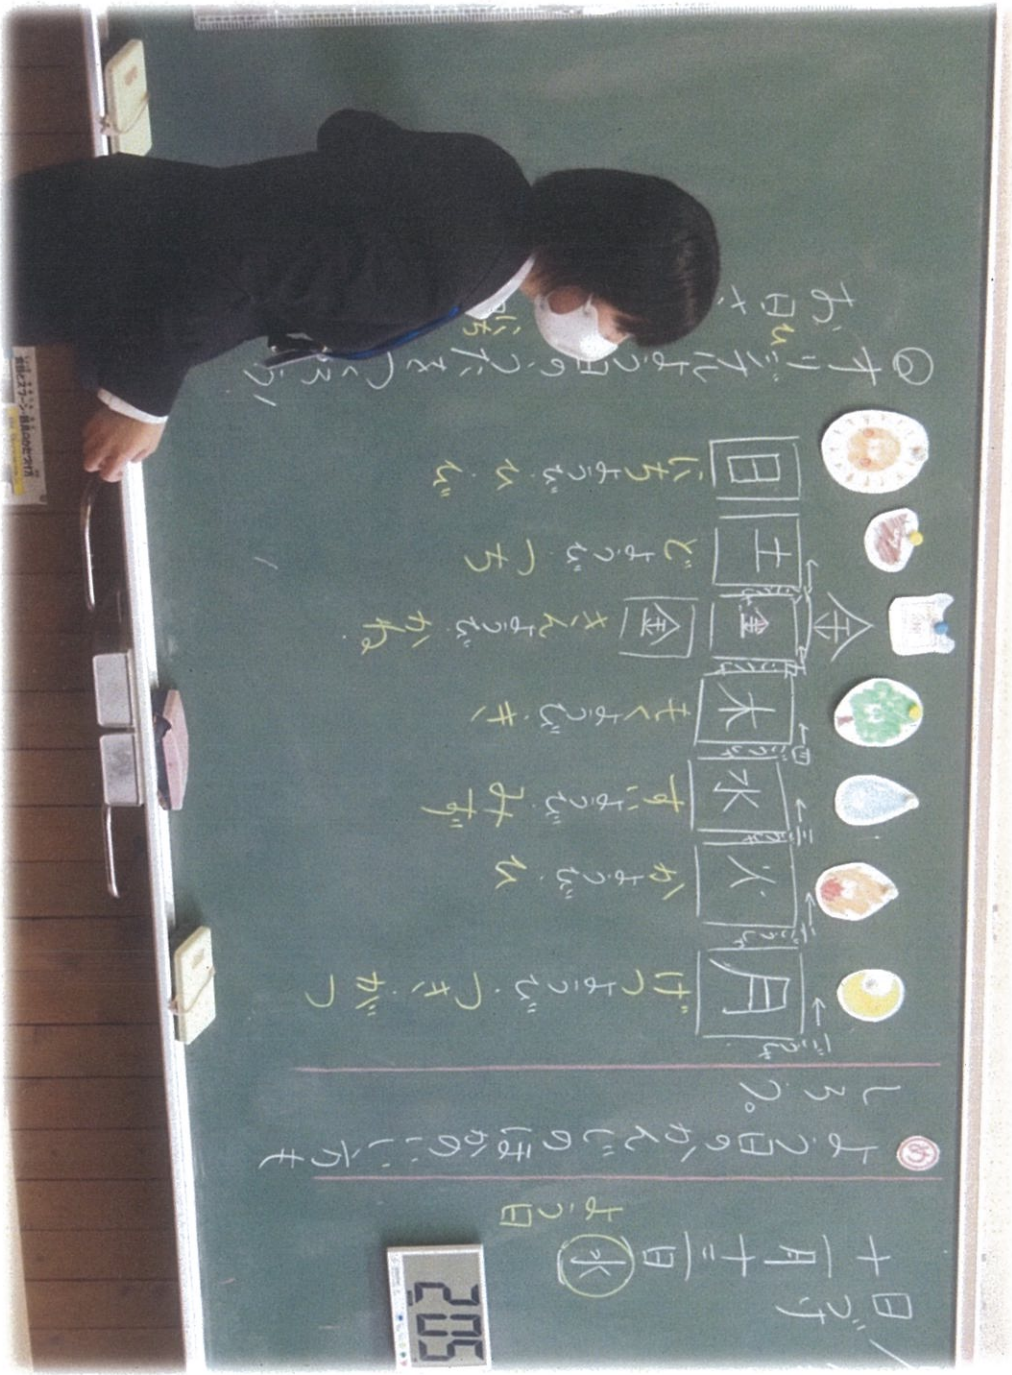 日づけ
十一月十三日(水)
よう日
め よう日のかんじのほかのいい方も
しろう。
月 げつようび・つき・がつ
火 かようび・ひ
水 すいようび・みず
木 もくようび・き
金 金 きんようび・かね
土 どようび・つち
日 にちようび・ひ・び
◎オリジナルよう日の をつくろう
お日さ
ひ
にち
2:05